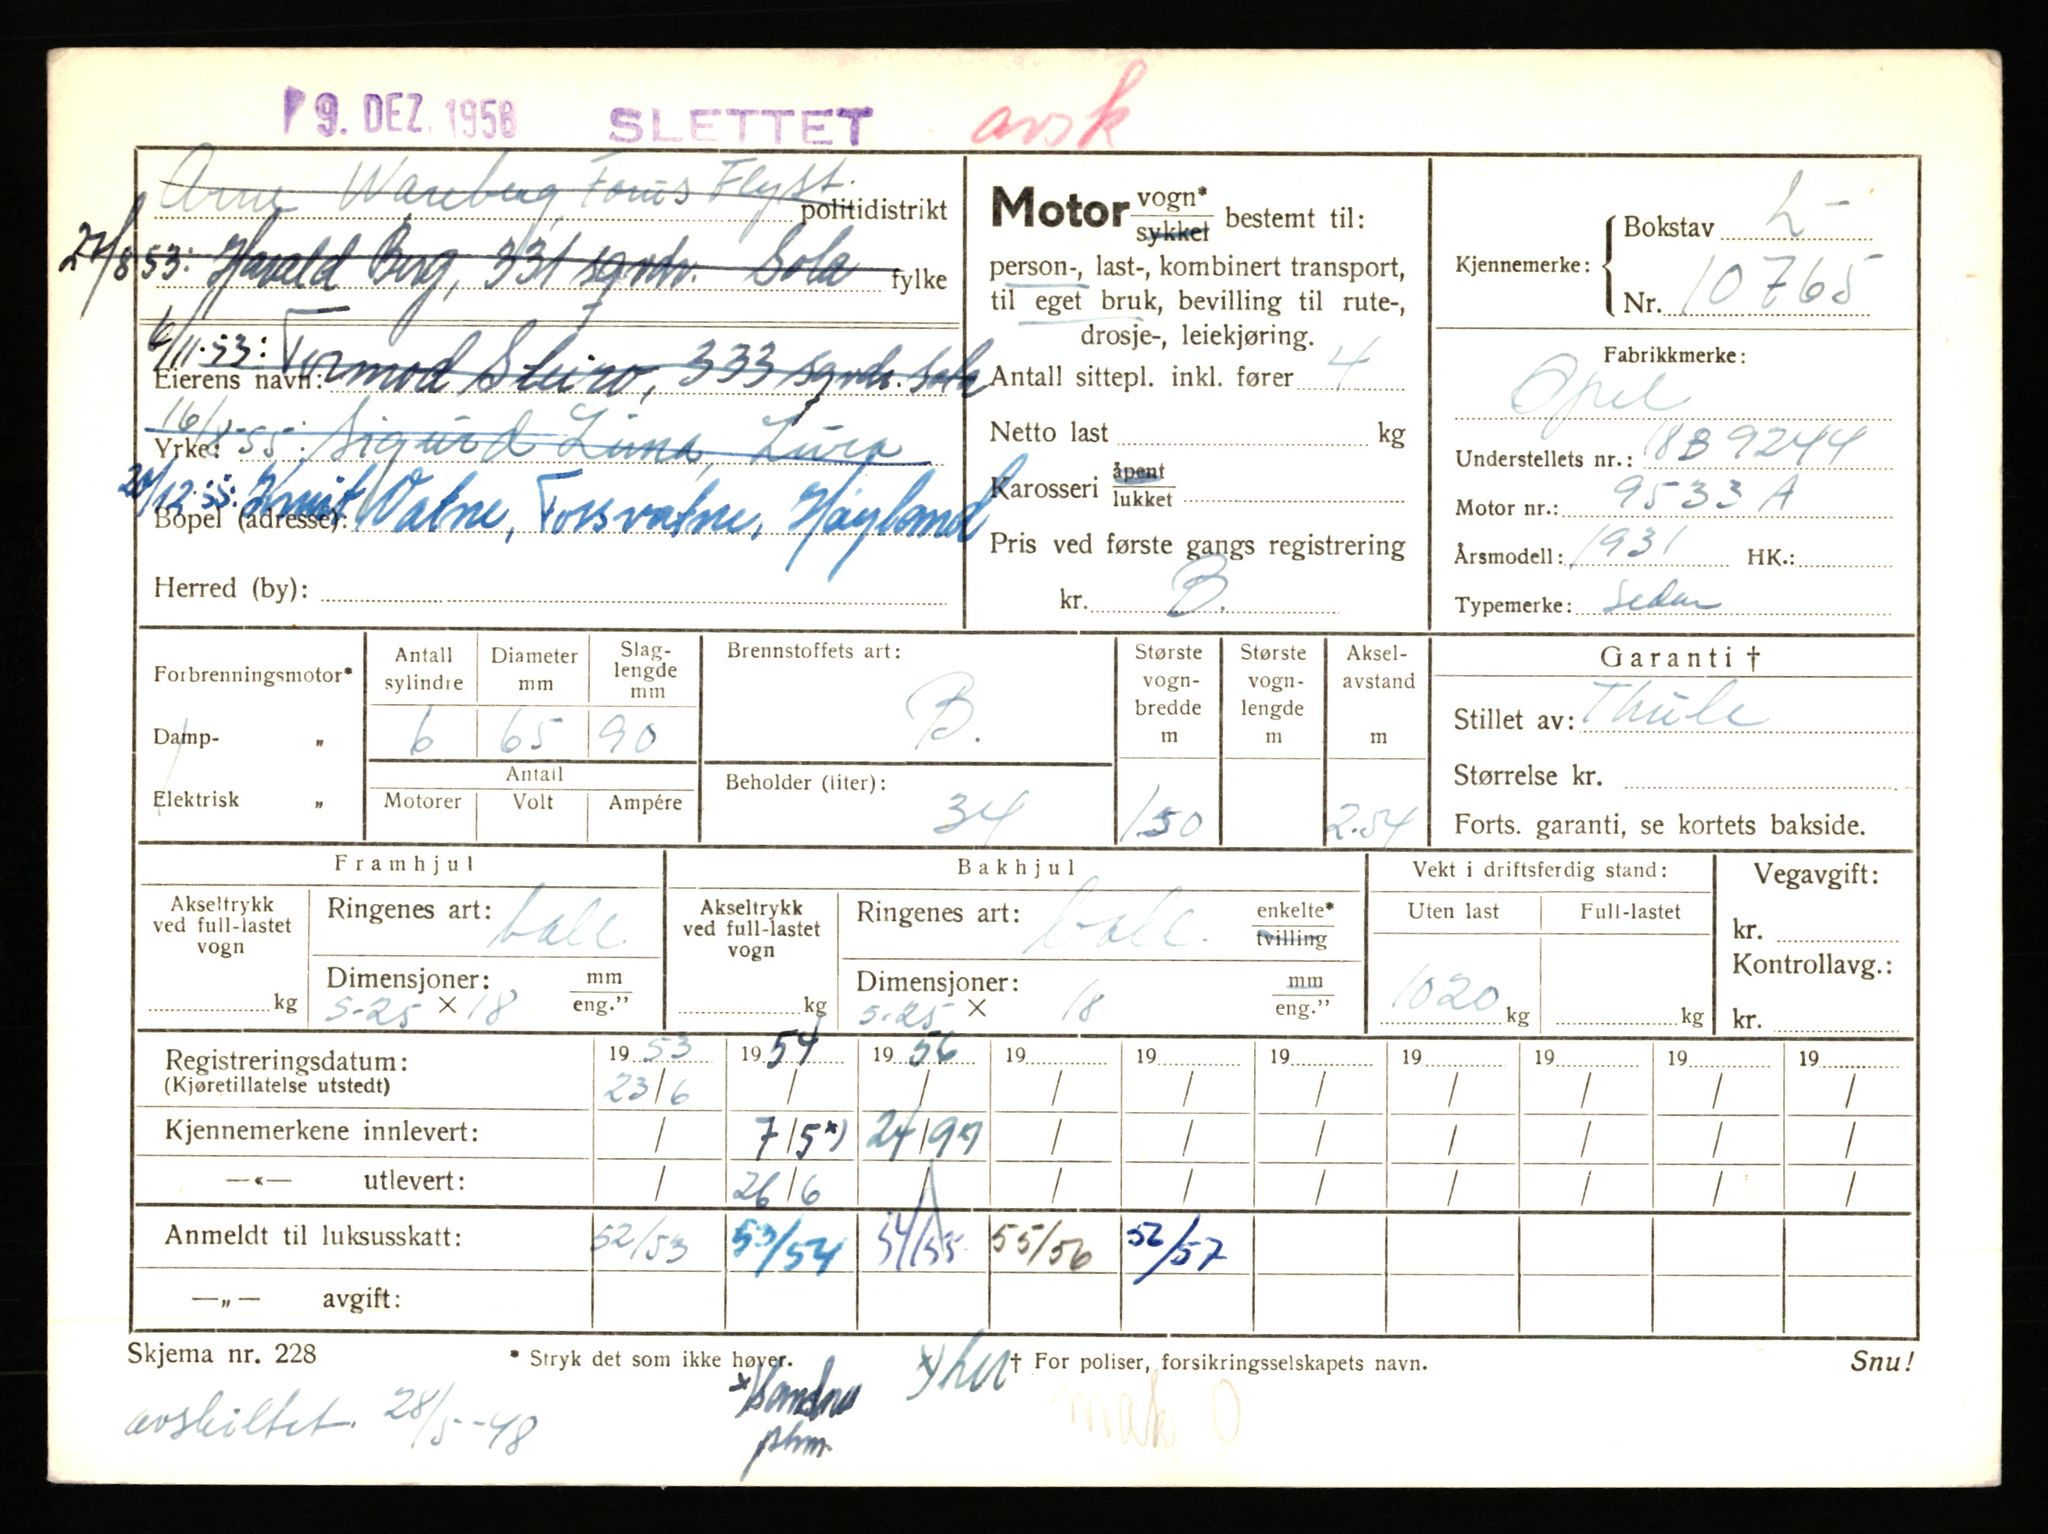 9. DEZ. 1958 SLETTET avsk
Arne Wareberg, Forus Flyst. politidistrikt
27/8 53: Harald Berg, 331 sqvdr. Sola fylke
6/11-53: Tormod Steiro, 333 sqvdr. Sola
Eierens navn:
16/8-55: Sigurd Lima, Lura
Yrke:
20/12-55: Knut Vatne, Forsvatne, Høyland
Bopel (adresse):
Herred (by):
Motor vogn* sykkel bestemt til:
person-, last-, kombinert transport,
til eget bruk, bevilling til rute-,
drosje-, leiekjøring.
Antall sittepl. inkl. fører 4
Netto last kg
Karosseri åpent lukket
Pris ved første gangs registrering
kr. B.
Kjennemerke: Bokstav L-
Nr. 10765
Fabrikkmerke:
Opel
Understellets nr.: 18B9244
Motor nr.: 9533 A
Årsmodell: 1931 HK.:
Typemerke: sedan
Forbrenningsmotor*
Damp- „
Elektrisk „
Antall sylindre Diameter mm Slag-lengde mm
6 65 90
Antall
Motorer Volt Ampére
Brennstoffets art:
B.
Beholder (liter):
34
Største vogn-bredde m
1.50
Største vogn-lengde m
Aksel-avstand m
2.54
Garanti †
Stillet av: Thule
Størrelse kr.
Forts. garanti, se kortets bakside.
Framhjul
Akseltrykk ved full-lastet vogn
kg
Ringenes art: ball.
Dimensjoner: mm eng.”
5-25 × 18
Bakhjul
Akseltrykk ved full-lastet vogn
kg
Ringenes art: ball. enkelte* tvilling
Dimensjoner: mm eng.”
5.25 × 18
Vekt i driftsferdig stand:
Uten last Full-lastet
1020 kg kg
Vegavgift:
kr.
Kontrollavg.:
kr.
Registreringsdatum: 19 53 19 54 19 56 19 19 19 19 19 19 19
(Kjøretillatelse utstedt) 23/6 / / / / / / / / /
Kjennemerkene innlevert: / 7/5*) 24/9*) / / / / / / /
—«— utlevert: / 26/6 / / / / / / / /
Anmeldt til luksusskatt: 52/53 53/54 54/55 55/56 52/57
—„— avgift:
Skjema nr. 228 * Stryk det som ikke høver. † For poliser, forsikringsselskapets navn. Snu!
avskiltet. 28/5-48